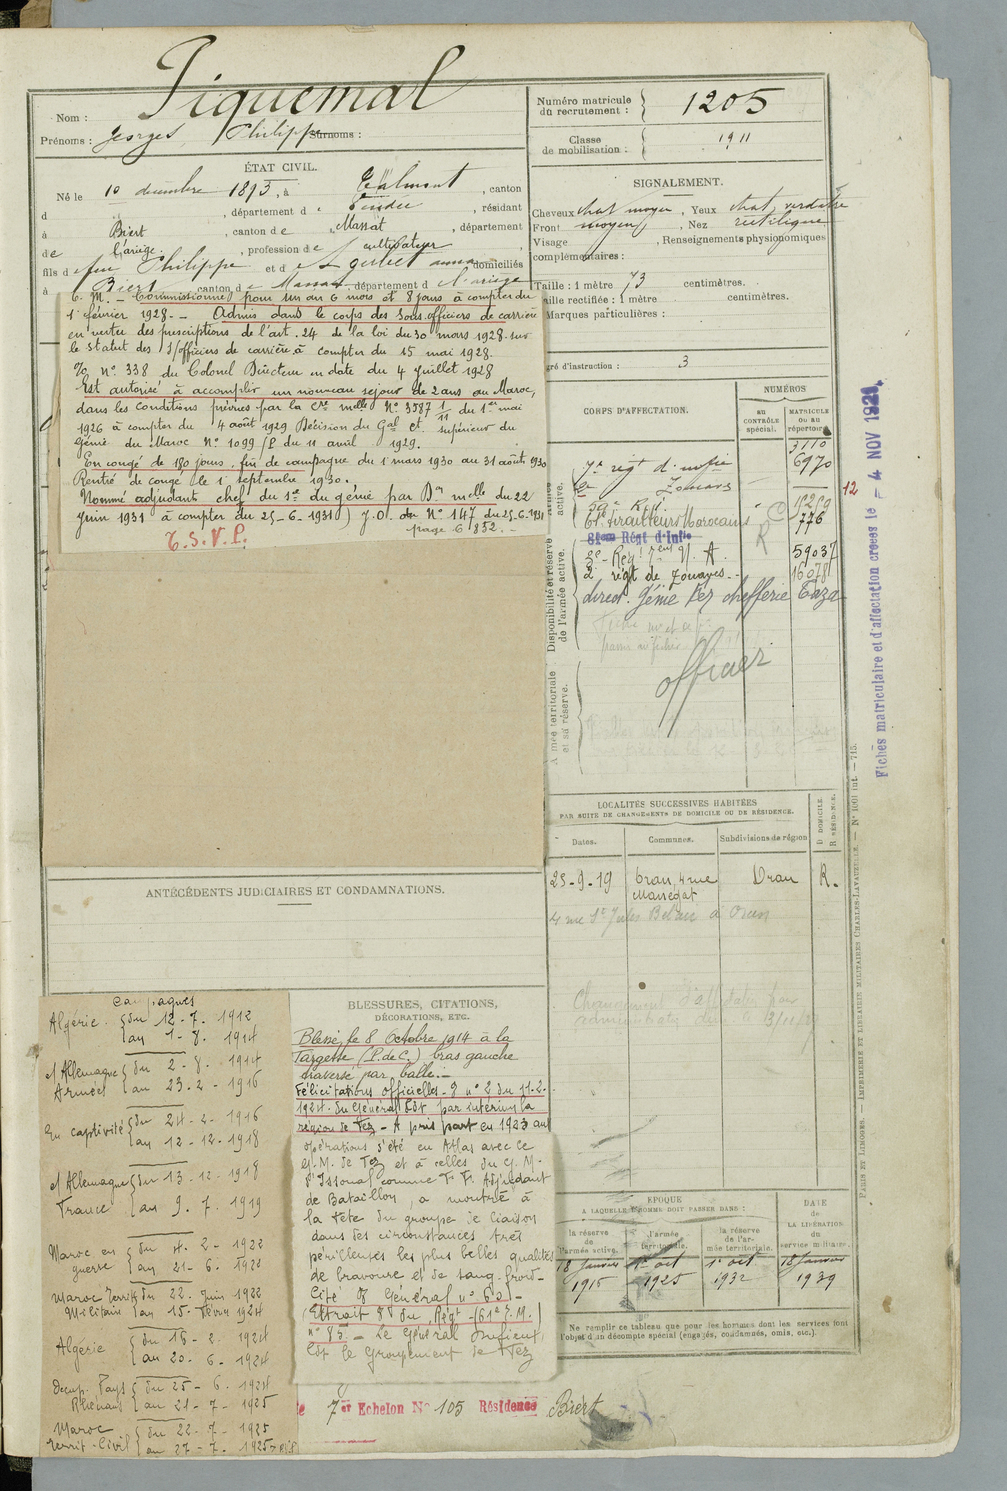 Nom : Piquemal
Prénoms : Georges Philippe Surnoms :
Numéro matricule du recrutement : 1205
Classe de mobilisation : 1911
ÉTAT CIVIL.
Né le 10 décembre 1893, à Talmont, canton
d , département de Vendée, résidant
à Biert, canton de Massat, département
de l'Ariège, profession de cultivateur,
fils de feu Philippe et d domiciliés
à Biert, canton de Massat, département de l'Ariège
SIGNALEMENT.
Cheveux chat. moyen, Yeux chat. verdâtre
Front moyen, Nez rectiligne
Visage , Renseignements physionomiques
complémentaires :
Taille : 1 mètre 73 centimètres.
Taille rectifiée : 1 mètre centimètres.
Marques particulières :
gré d'instruction : 3
C. M. - Commissionné pour un an 6 mois et 8 jours à compter du
1er février 1928. - Admis dans le corps des Sous-officiers de carrière
en vertu des prescriptions de l'art. 24 de la loi du 30 mars 1928 sur
le statut des s/officiers de carrière à compter du 15 mai 1928.
% n° 338 du Colonel Directeur en date du 4 juillet 1928
Est autorisé à accomplir un nouveau séjour de 2 ans au Maroc,
dans les conditions prévues par la Cre melle N° 3587 1/11 du 1er mai
1926 à compter du 4 août 1929 Décision du Gal Ct supérieur du
Génie du Maroc N° 1099/P. du 11 avril 1929.
En congé de 180 jours, fin de campagne du 1 mars 1930 au 31 août 1930
Rentré de congé le 1 septembre 1930.
Nommé adjudant chef du 1er du génie par Don melle du 22
juin 1931 à compter du 25-6-1931) J.O. N° 147 du 25-6-1931
page 6852. -
T.S.V.P.
CORPS D'AFFECTATION.
NUMÉROS
au CONTRÔLE spécial.
MATRICULE ou au répertoire
Disponibilité et réserve de l'armée active.
Armée territoriale et sa réserve.
3110
7e régt d'infie 6970
2e Zouaves
12
Tirailleurs Marocains 776
81ème Régt d'Infie
59037
2e régt de Zouaves 16078
direct. Génie Fez chefferie Taza
officier
Fiches matriculaire et d'affectation créées le - 4 NOV 1921.
LOCALITÉS SUCCESSIVES HABITÉES
PAR SUITE DE CHANGEMENTS DE DOMICILE OU DE RÉSIDENCE.
Dates. Communes. Subdivisions de région D DOMICILE. R RÉSIDENCE.
25-9-19 Oran, 4 rue Oran R.
ANTÉCÉDENTS JUDICIAIRES ET CONDAMNATIONS.
Campagnes
Algérie { du 12-7-1912
au 1-8-1914
c/ Allemagne { du 2-8-1914
Armées au 23-2-1916
En captivité { du 24-2-1916
au 12-12-1918
c/ Allemagne { du 13-12-1918
France au 9-7-1919
Maroc en { du 4-2-1922
guerre au 21-6-1922
Maroc Territ. { du 22 Juin 1922
Militaire au 15 Févr. 1924
Algérie { du 16-2-1924
au 20-6-1924
Occup. Pays { du 25-6-1924
Rhénans au 21-7-1925
Maroc { du 22-7-1925
Territ. Civil au 27-7-1925
BLESSURES, CITATIONS,
DÉCORATIONS, ETC.
Blessé le 8 Octobre 1914 à la
Targette (P. de C.) bras gauche
traversé par balle. -
Félicitations officielles - O n° 2 du 11-2-
1924 du Général Cdt par intérim la
région de Fez - A pris part en 1923 aux
opérations d'été en Atlas avec le
G.M. de Fez et à celles du G.M.
d'Issoual comme Adjudant
de Bataillon, a montré à
la tête du groupe de liaison
dans des circonstances très
périlleuses les plus belles qualités
de bravoure et de sang-froid -
Cité O Général n° 63) -
(Extrait O du Régt (61e R.M.)
n° 83 - Le Général
Cdt le Groupement de Fez
ÉPOQUE
A LAQUELLE L'HOMME DOIT PASSER DANS :
DATE de LA LIBÉRATION du service militaire.
la réserve de l'armée active. l'armée territoriale. la réserve de l'armée territoriale.
18 Janvier 1915 1er oct 1925 1er oct 1932 18 Janvier 1939
Ne remplir ce tableau que pour les hommes dont les services font
l'objet d'un décompte spécial (engagés, condamnés, omis, etc.).
7er Echelon N° 105 Résidence Biert
PARIS ET LIMOGES. — IMPRIMERIE ET LIBRAIRIE MILITAIRES CHARLES-LAVAUZELLE. — N° 1001 int. — 715.